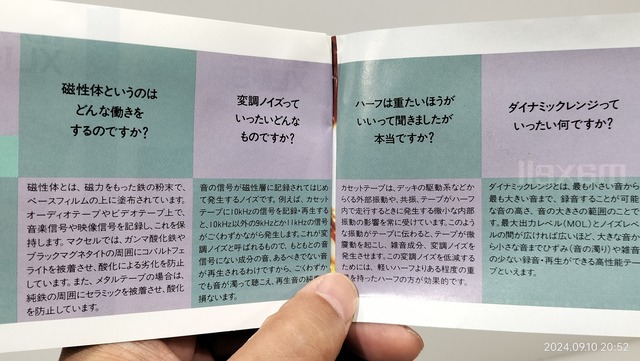 磁性体というのは
どんな働きを
するのですか?
磁性体とは、磁力をもった鉄の粉末で、
ベースフィルムの上に塗布されています。
オーディオテープやビデオテープ上で、
音楽信号や映像信号を記録し、これを保
持します。マクセルでは、ガンマ酸化鉄や
ブラックマグネタイトの周囲にコバルトフェ
ライトを被着させ、酸化による劣化を防止
しています。また、メタルテープの場合は、
純鉄の周囲にセラミックを被着させ、酸化
を防止しています。
変調ノイズって
いったいどんな
ものですか?
音の信号が磁性層に記録されてはじめ
て発生するノイズです。例えば、カセット
テープに10kHzの信号を記録・再生する
と、10kHz以外の9kHzとか11kHzの信号
がごくわずかながら発生します。これが変
調ノイズと呼ばれるもので、もともとの音
信号にない成分の音、あるべきでない音
が再生されるわけですから、ごくわずか
でも音が濁って聴こえ、再生音の純
損ないます。
ハーフは重たいほうが
いいって聞きましたが
本当ですか?
カセットテープは、デッキの駆動系などか
らくる外部振動や、共振、テープがハーフ
内で走行するときに発生する微小な内部
振動の影響を常に受けています。このよう
な振動がテープに伝わると、テープが微
震動を起こし、雑音成分、変調ノイズを
発生させます。この変調ノイズを低減する
ためには、軽いハーフよりある程度の重
を持ったハーフの方が効果的です。
ダイナミックレンジって
いったい何ですか?
ダイナミックレンジとは、最も小さい音から
最も大きいまで、録音することが可能
な音の高さ、音の大きさの範囲のことで
す。最大出力レベル(MOL)とノイズレベ
ルの間が広ければ広いほど、大きな音か
ら小さな音までひずみ(音の濁り)や雑音
の少ない録音・再生ができる高性能テー
プといえます。
maxell
2024.09.10 20:52